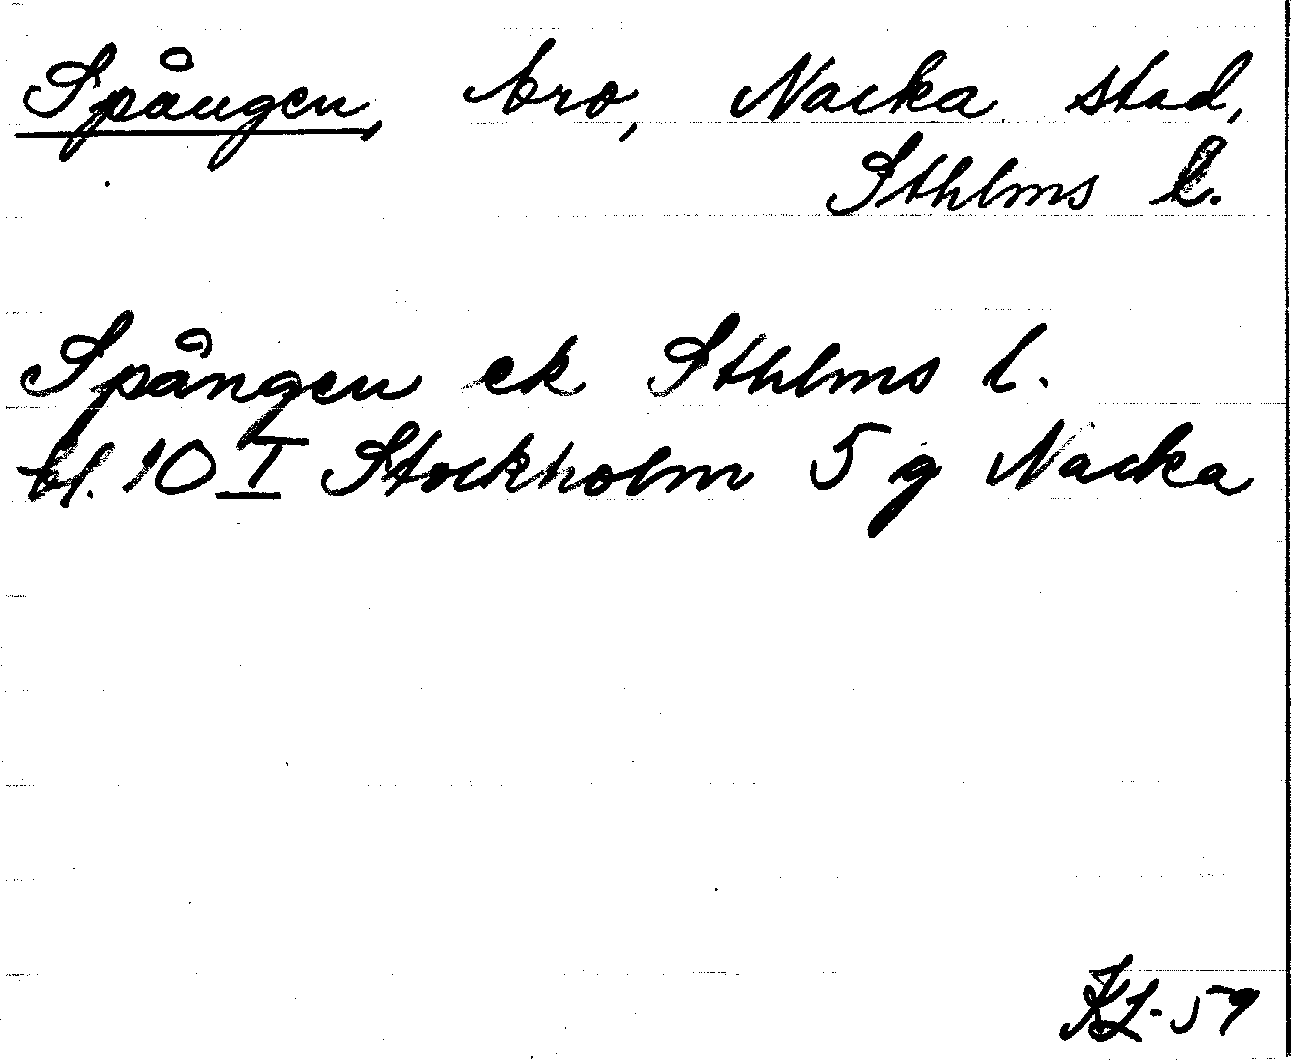 Spången, bro, Nacka stad,
Sthlms l.
Spången ek Sthlms l.
bl. 10 I Stockholm 5 g Nacka
KL-59